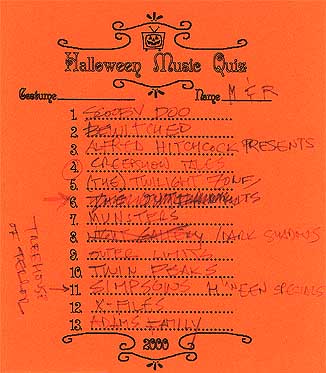 Halloween Music Quiz
Costume Name M & R
1. SCOOBY DOO
2. BEWITCHED
3. ALFRED HITCHCOCK PRESENTS
4. CREEPSHOW TALES
5. (THE) TWILIGHT ZONE
6.
7. MUNSTERS
8. NIGHT GALLERY / DARK SHADOWS
9. OUTER LIMITS
10. TWIN PEAKS
11. SIMPSONS H'WEEN SPECIALS
12. X-FILES
13. ADAMS FAMILY
TREEHOUSE
OF TERROR
2000